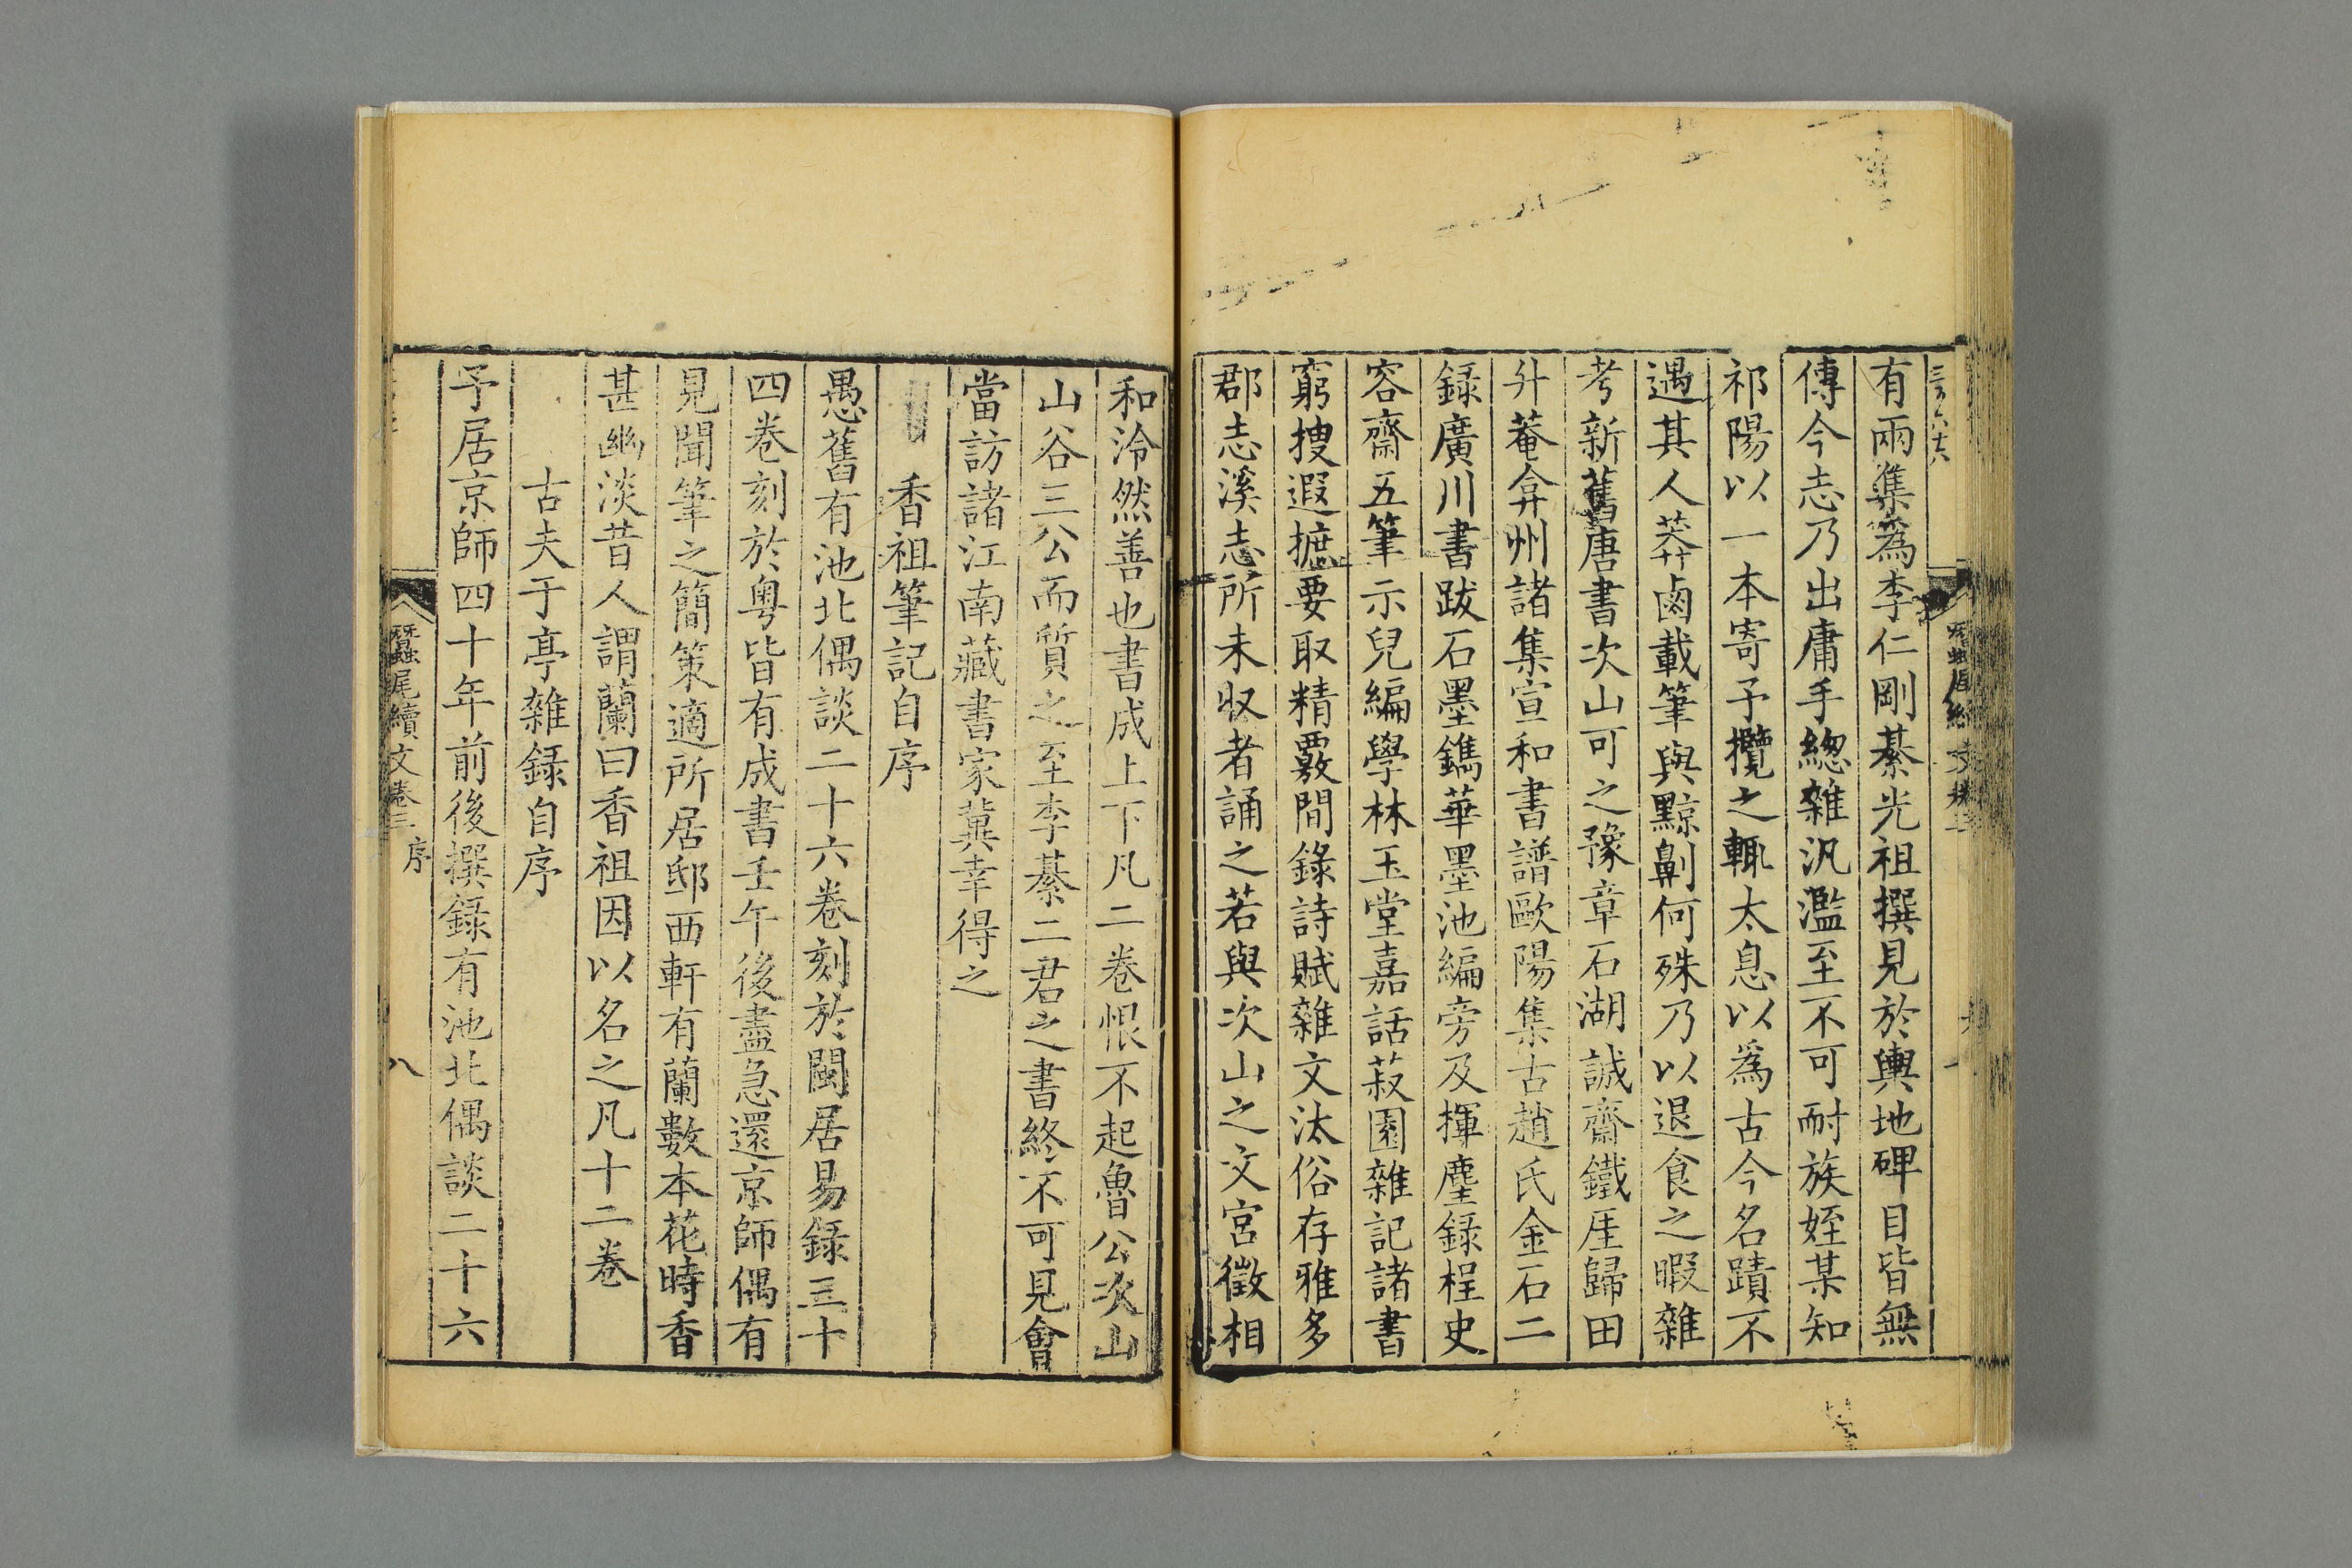 有兩集為李仁剛綦光祖撰見於輿地碑目皆無
傳今志乃出庸手緫雜汎濫至不可耐族姪某知
祁陽以一本寄予攬之輒太息以為古今名蹟不
遇其人莽鹵載筆與黥劓何殊乃以退食之暇雜
考新舊唐書次山可之豫章石湖誠齋鐵厓歸田
升菴弇州諸集宣和書譜歐陽集古趙氏金石二
録廣川書跋石墨鐫華墨池編旁及揮麈録桯史
容齋五筆示兒編學林玉堂嘉話菽園雜記諸書
窮搜遐摭要取精覈間錄詩賦雜文汰俗存雅多
郡志溪志所未収者誦之若與次山之文宮徵相
和泠然善也書成上下凡二卷恨不起魯公次山
山谷三公而質之至李綦二君之書終不可見會
當訪諸江南藏書家冀幸得之
香祖筆記自序
愚舊有池北偶談二十六卷刻於閩居易録三十
四卷刻於粵皆有成書壬午後盡急還京師偶有
見聞筆之簡策適所居邸西軒有蘭數本花時香
甚幽淡昔人謂蘭曰香祖因以名之凡十二卷
古夫于亭雜録自序
予居京師四十年前後撰録有池北偶談二十六
蠶尾續文卷三 序 八